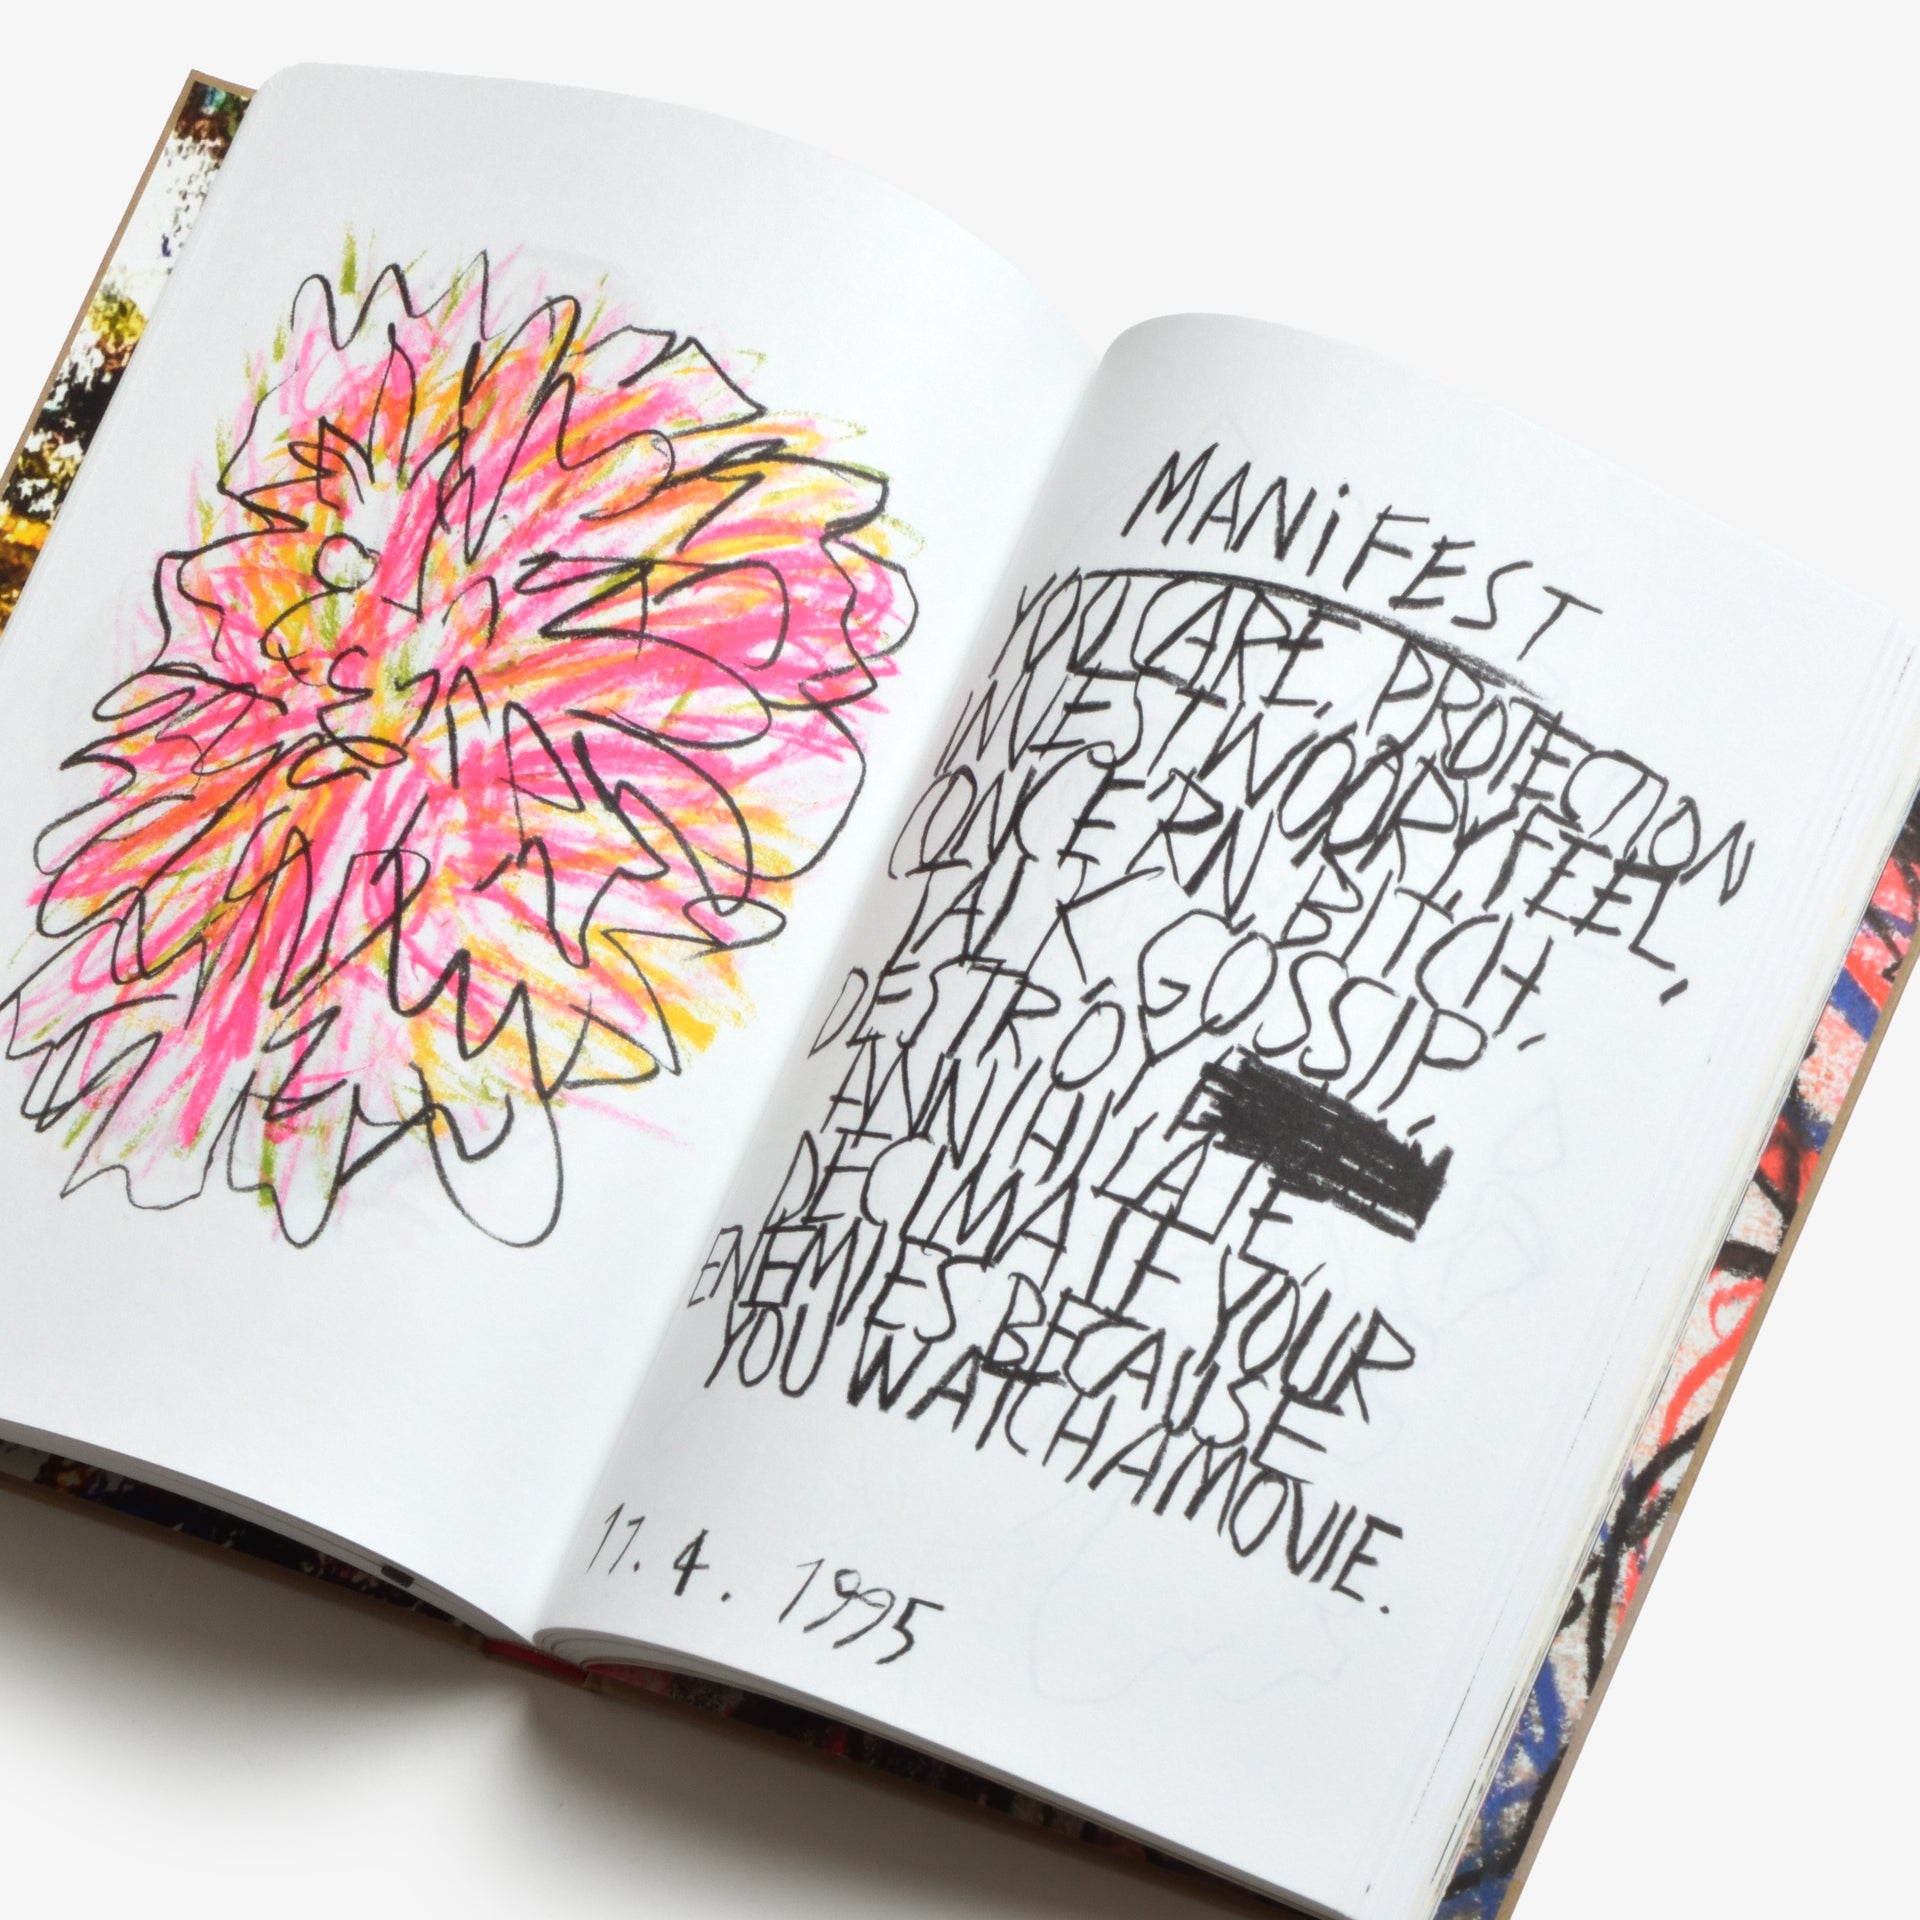 MANiFEST
YOU CARE, PROTECTION
INVEST WORRY, FEEL,
CONCERN, BITCH,
TALK, GOSSIP,
DESTROY,
ANNIHILATE,
DECIMATE YOUR
ENEMIES BECAUSE
YOU WATCH A MOVIE.
17. 4. 1995